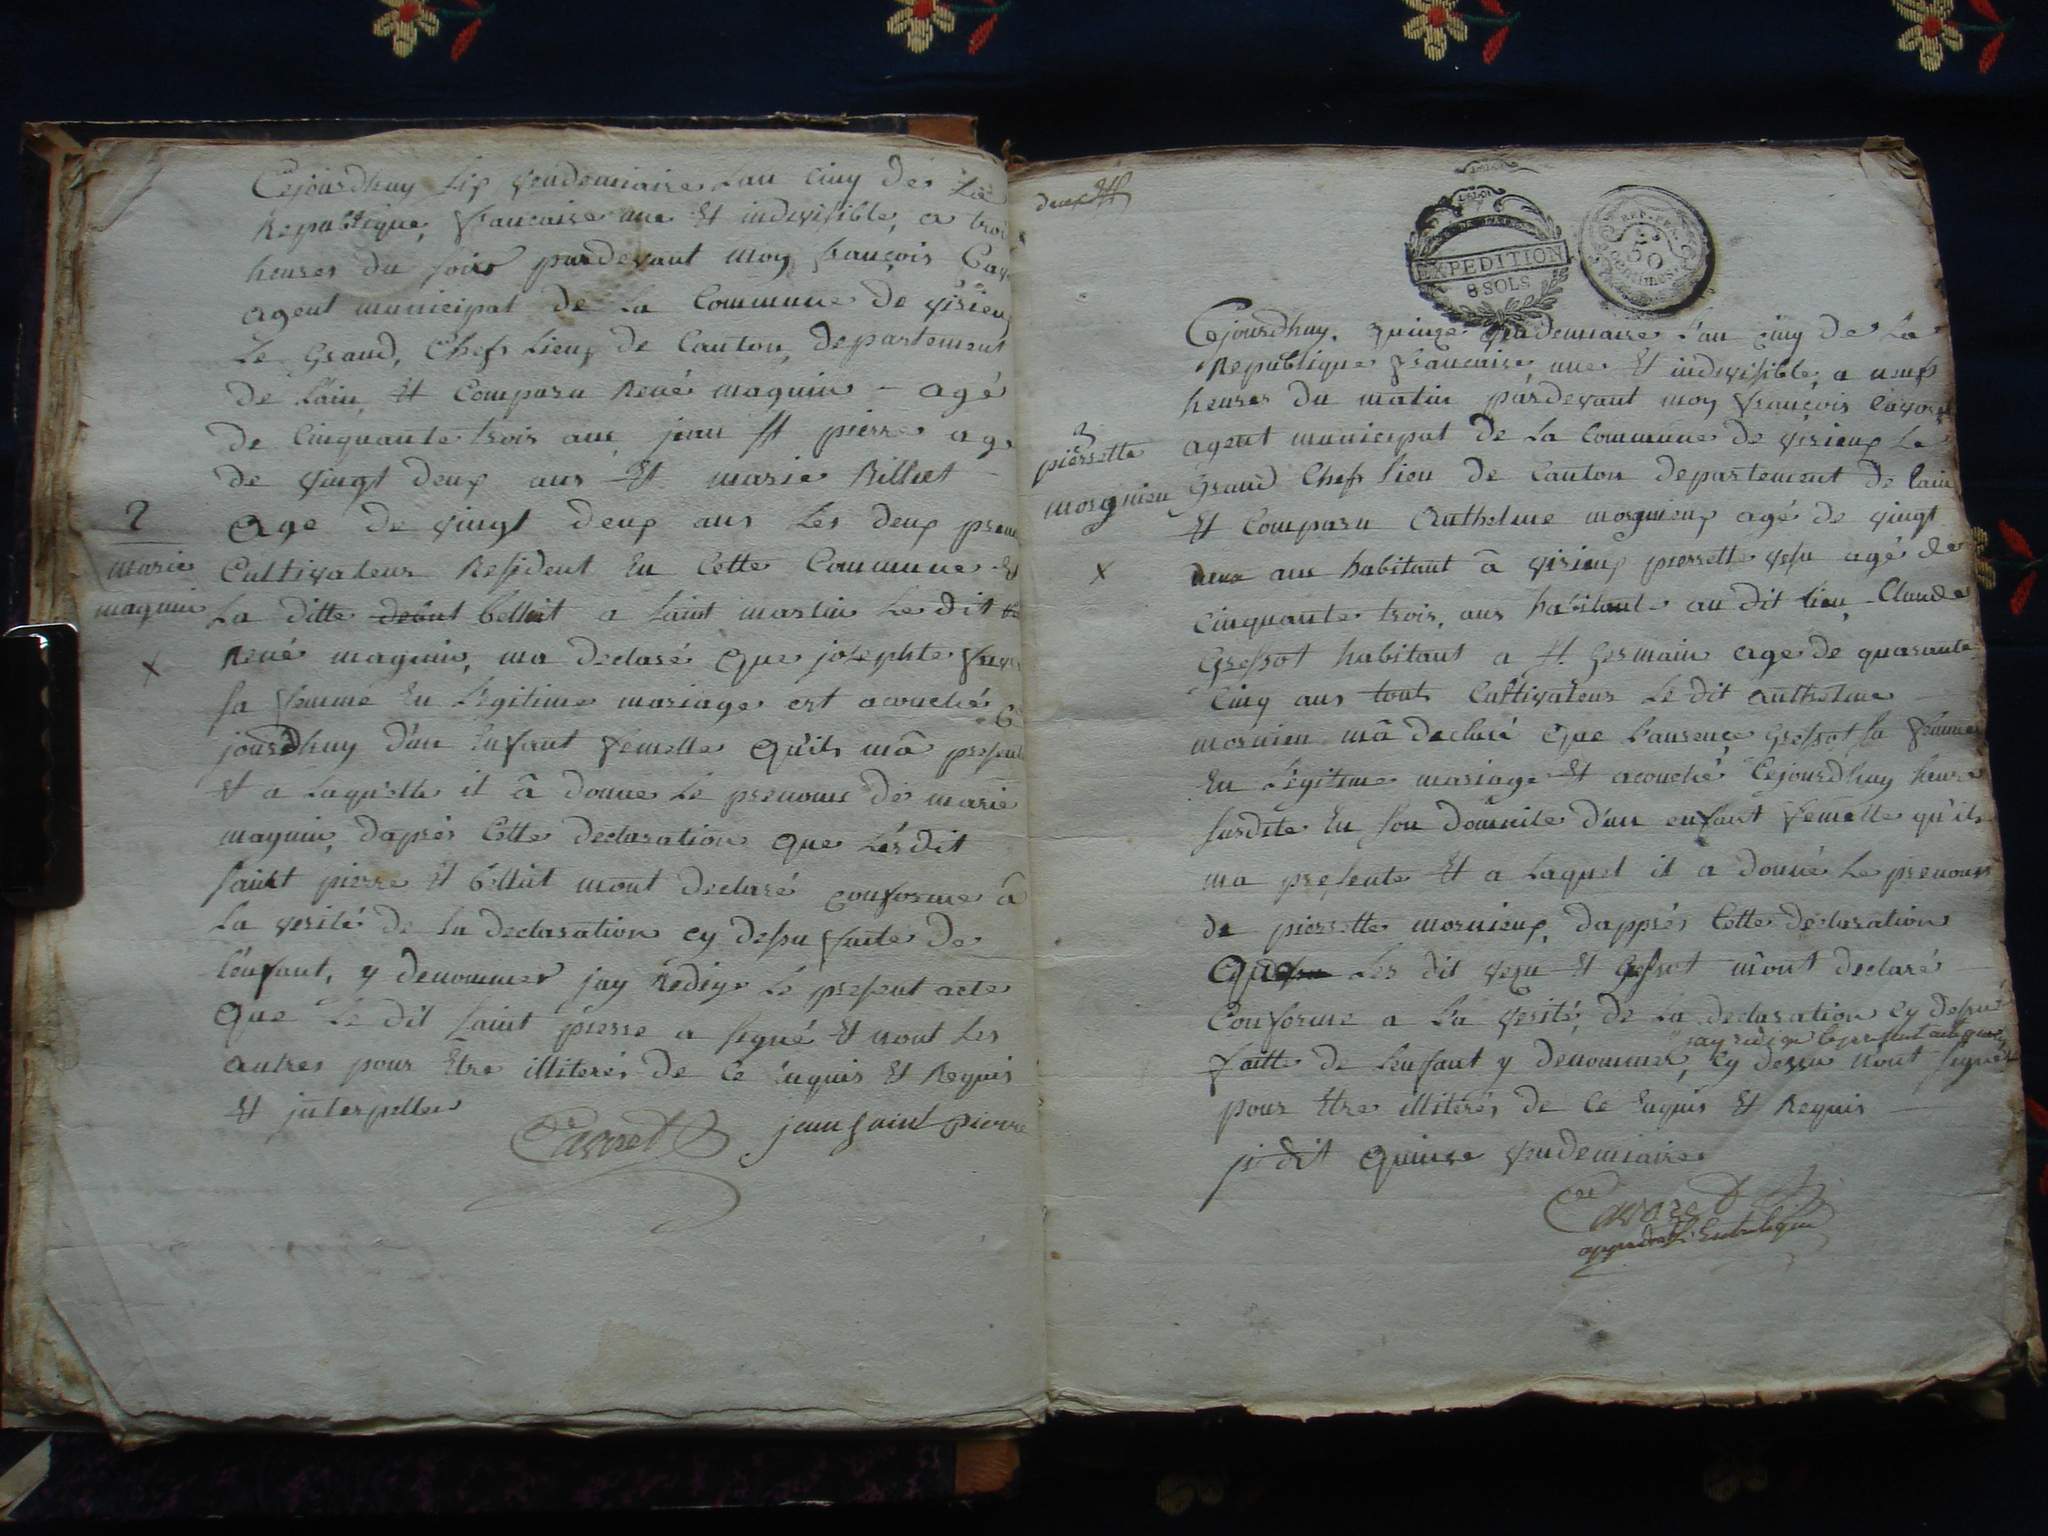 Cejourdhuy six vendemiaire lan cinq de La
Republique, francaise une Et indivisible, a trois
heures du soir pardevant moy françois Cav
agent municipal de La Commune de virieu
Le Grand, Chef Lieu de Canton, departement
de Lain, Et Comparu René magnin — agé
de Cinquante trois ans jean st pierre age
de vingt deux ans Et marie Billiet
2
Age de vingt deux ans Les deux prem
marie
magnin
X
Cultivateur Resident En Cette Commune Et
La ditte belluit a saint martin Le dit
René magnin, ma declaré que josephte
sa femme En Legitime mariage est acouché Ce
jourdhuy d'un Enfant femelle qu'ils mâ present
Et a Laquelle il â donne Le prenoms de marie
magnin, dapres Cette declaration que Lesdit
saint pierre Et belluit mont declaré conforme â
La verité de La declaration cy dessu faite de
L'enfant, y denommer jay Rediger Le present acte
que Le dit saint pierre a signé Et nont Les
autres pour Etre illiterés de Ce Enquis Et Requis
Et interpeller
Cavoret jean saint pierre
deux
EXPEDITION
8 SOLS
REP. FRA.
50
CENTIMES
Cejourdhuy, quinze vendemiaire l'an cinq de La
Republique francaise, une Et indivisible, a neuf
heures du matin pardevant moy françois Cavoret
agent municipal de La Commune de virieux Le
Grand Chef Lieu de Canton departement de Lain
3
pierrette
morgnieu
X
Et Comparu Anthelme morgnieux agé de vingt
deux ans habitant â virieux pierrette vesu agé de
Cinquante trois, ans habitante au dit lieu, Claude
Gressot habitant a st. Germain age de quarante
Cinq ans touts Cultivateur Le dit Anthelme
mornieu mâ declaré que Laurence Gressot sa femme
En Legitime mariage Et acouché Cejourdhuy heure
susdite En son domicile d'un enfant femelle qu'ils
ma presente Et a Laquel il a donné Le prenoms
de pierrette mornieux, dapprés Cette declaration
que Les dit vesu Et Gessot m'ont declaré
Conforme a La verité, de La declaration cy dessu
jay redige le present acte que
faitte de Lenfant y denommer, Cy dessu nont signér
pour Etre illiterés de Ce Enquis Et Requis
dit quinze vendemiaire
Cavoret